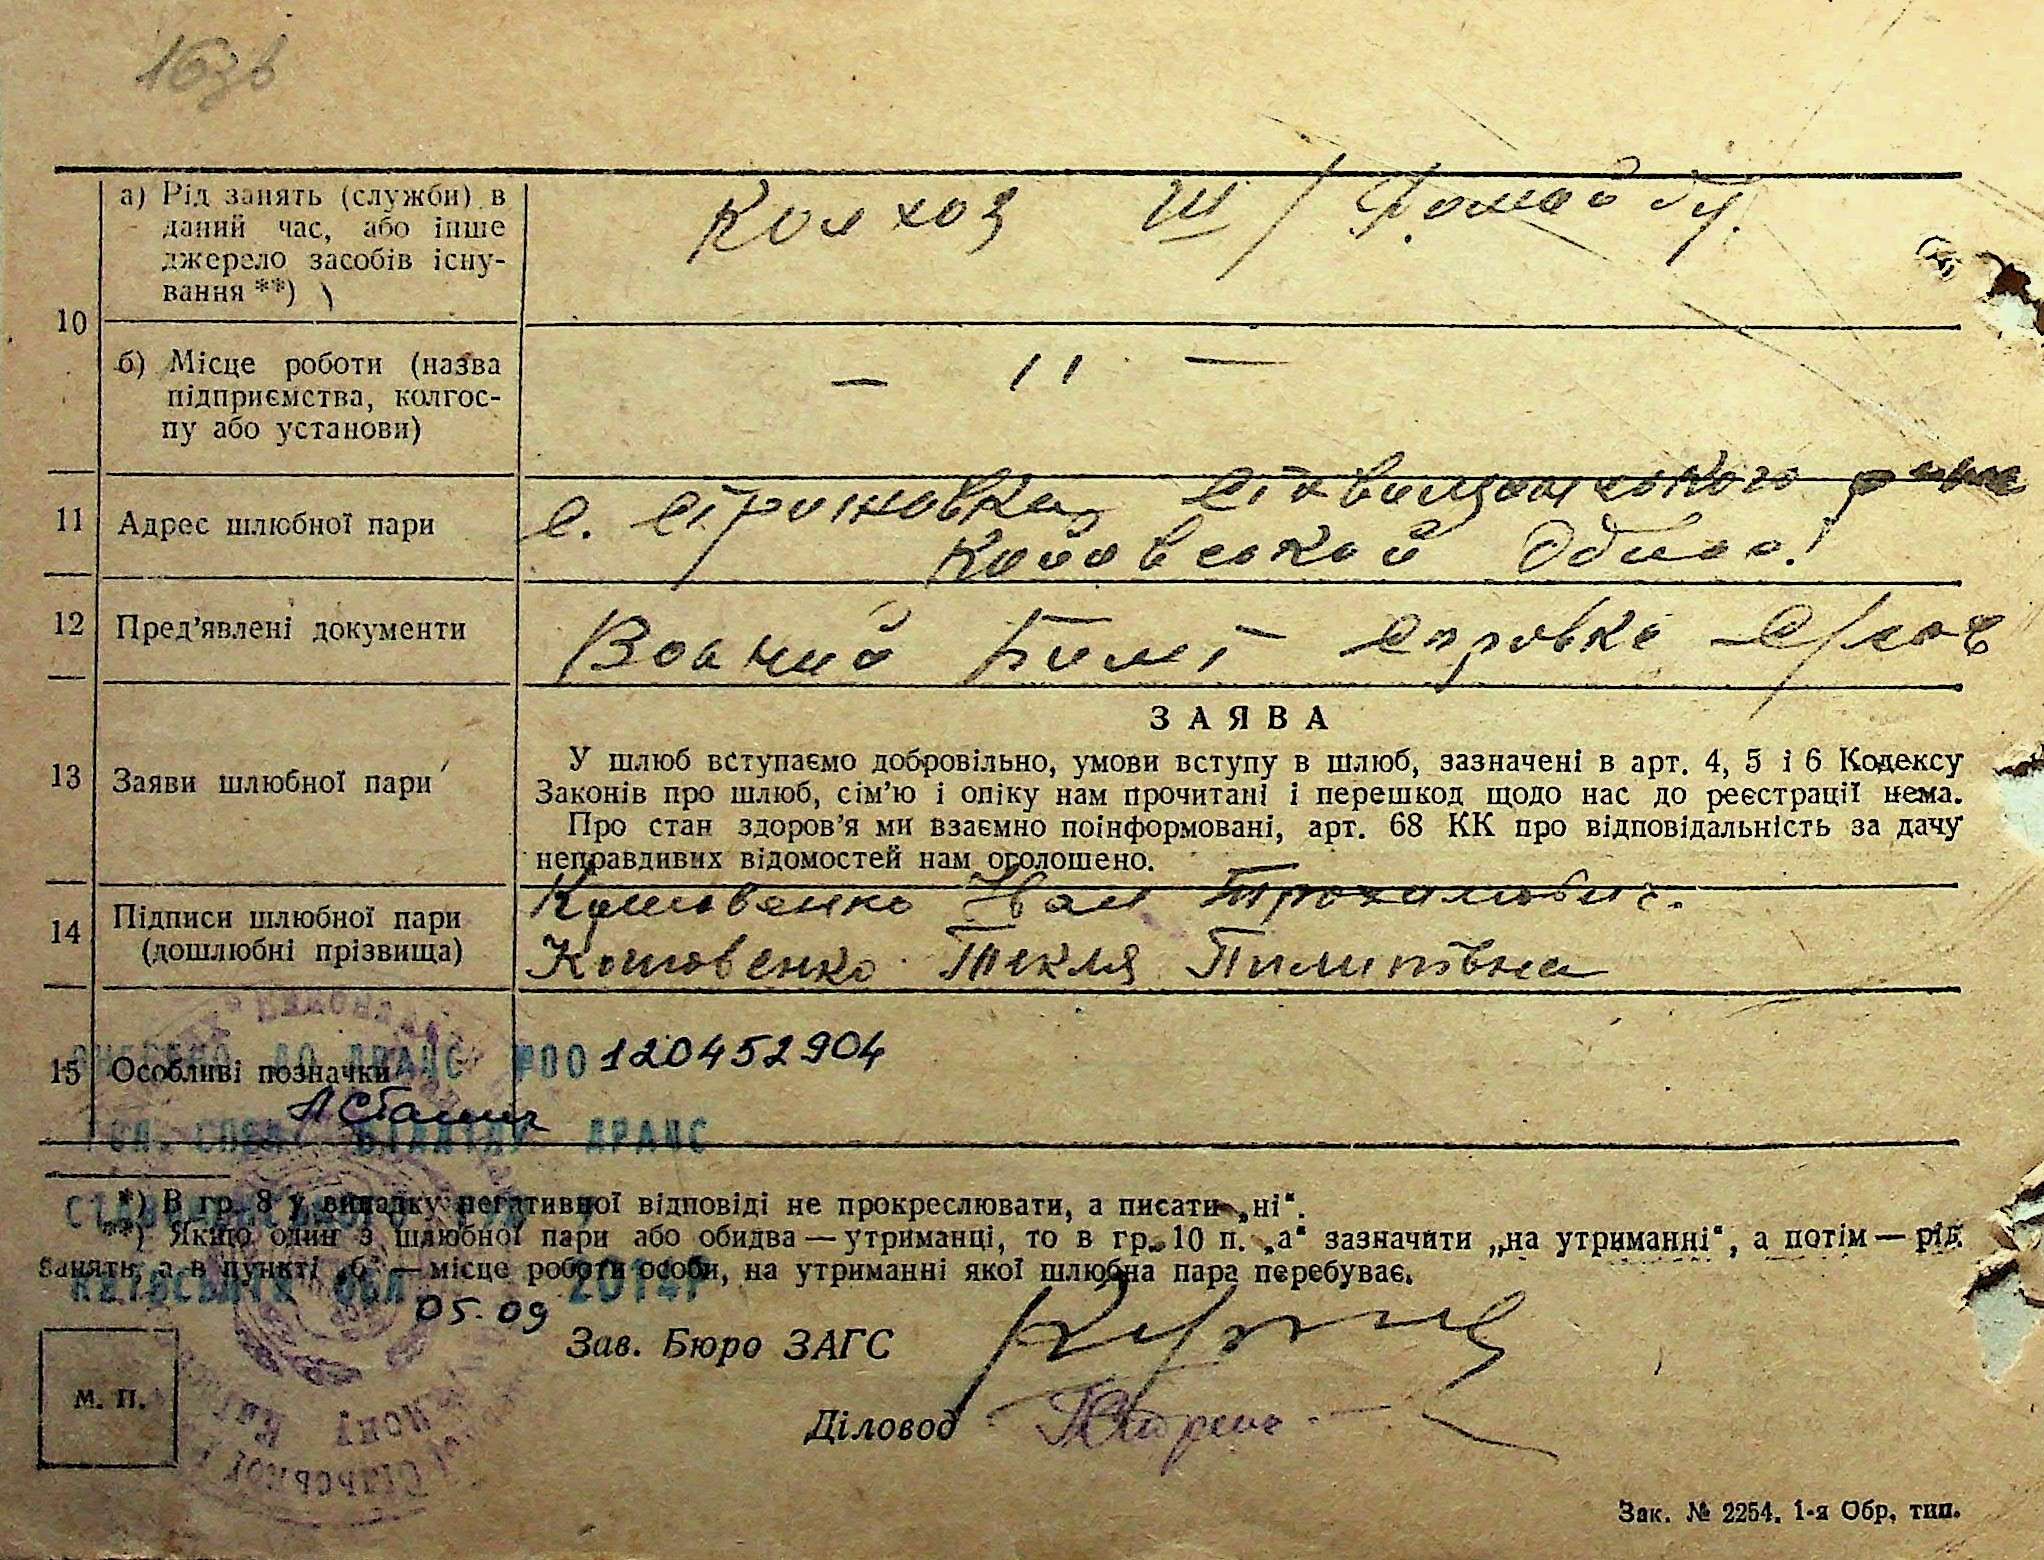 163в
а) Рід занять (служби) в
даний час, або інше
джерело засобів існу-
вання **)
Колхоз
10
б) Місце роботи (назва
підприємства, колгос-
пу або установи)
— 11 —
11 Адрес шлюбної пари
с. Стрижовка Ставищанського
Київської Област!
12 Пред'явлені документи
Воєний Билет Справка
ЗАЯВА
13 Заяви шлюбної пари
У шлюб вступаємо добровільно, умови вступу в шлюб, зазначені в арт. 4, 5 і 6 Кодексу
Законів про шлюб, сім'ю і опіку нам прочитані і перешкод щодо нас до реєстрації нема.
Про стан здоров'я ми взаємно поінформовані, арт. 68 КК про відповідальність за дачу
неправдивих відомостей нам оголошено.
14 Підписи шлюбної пари
(дошлюбні прізвища)
Іван
Котовенко Текля Пилипівна
ВНЕСЕНО ДО ДРАЦС Р00120452904
15 Особливі позначки
ГОЛ. СПЕЦ. ВІДДІЛУ ДРАЦС
*) В гр. 8 у випадку негативної відповіді не прокреслювати, а писати „ні“.
**) Якщо один з шлюбної пари або обидва — утриманці, то в гр. 10 п. „а“ зазначити „на утриманні“, а потім — рід
занять, а в пункті „б“ — місце роботи особи, на утриманні якої шлюбна пара перебуває.
КИЇВСЬКА ОБЛ 05.09 2014Р
Зав. Бюро ЗАГС
М. П.
Діловод
Зак. № 2254. 1-я Обр. тип.